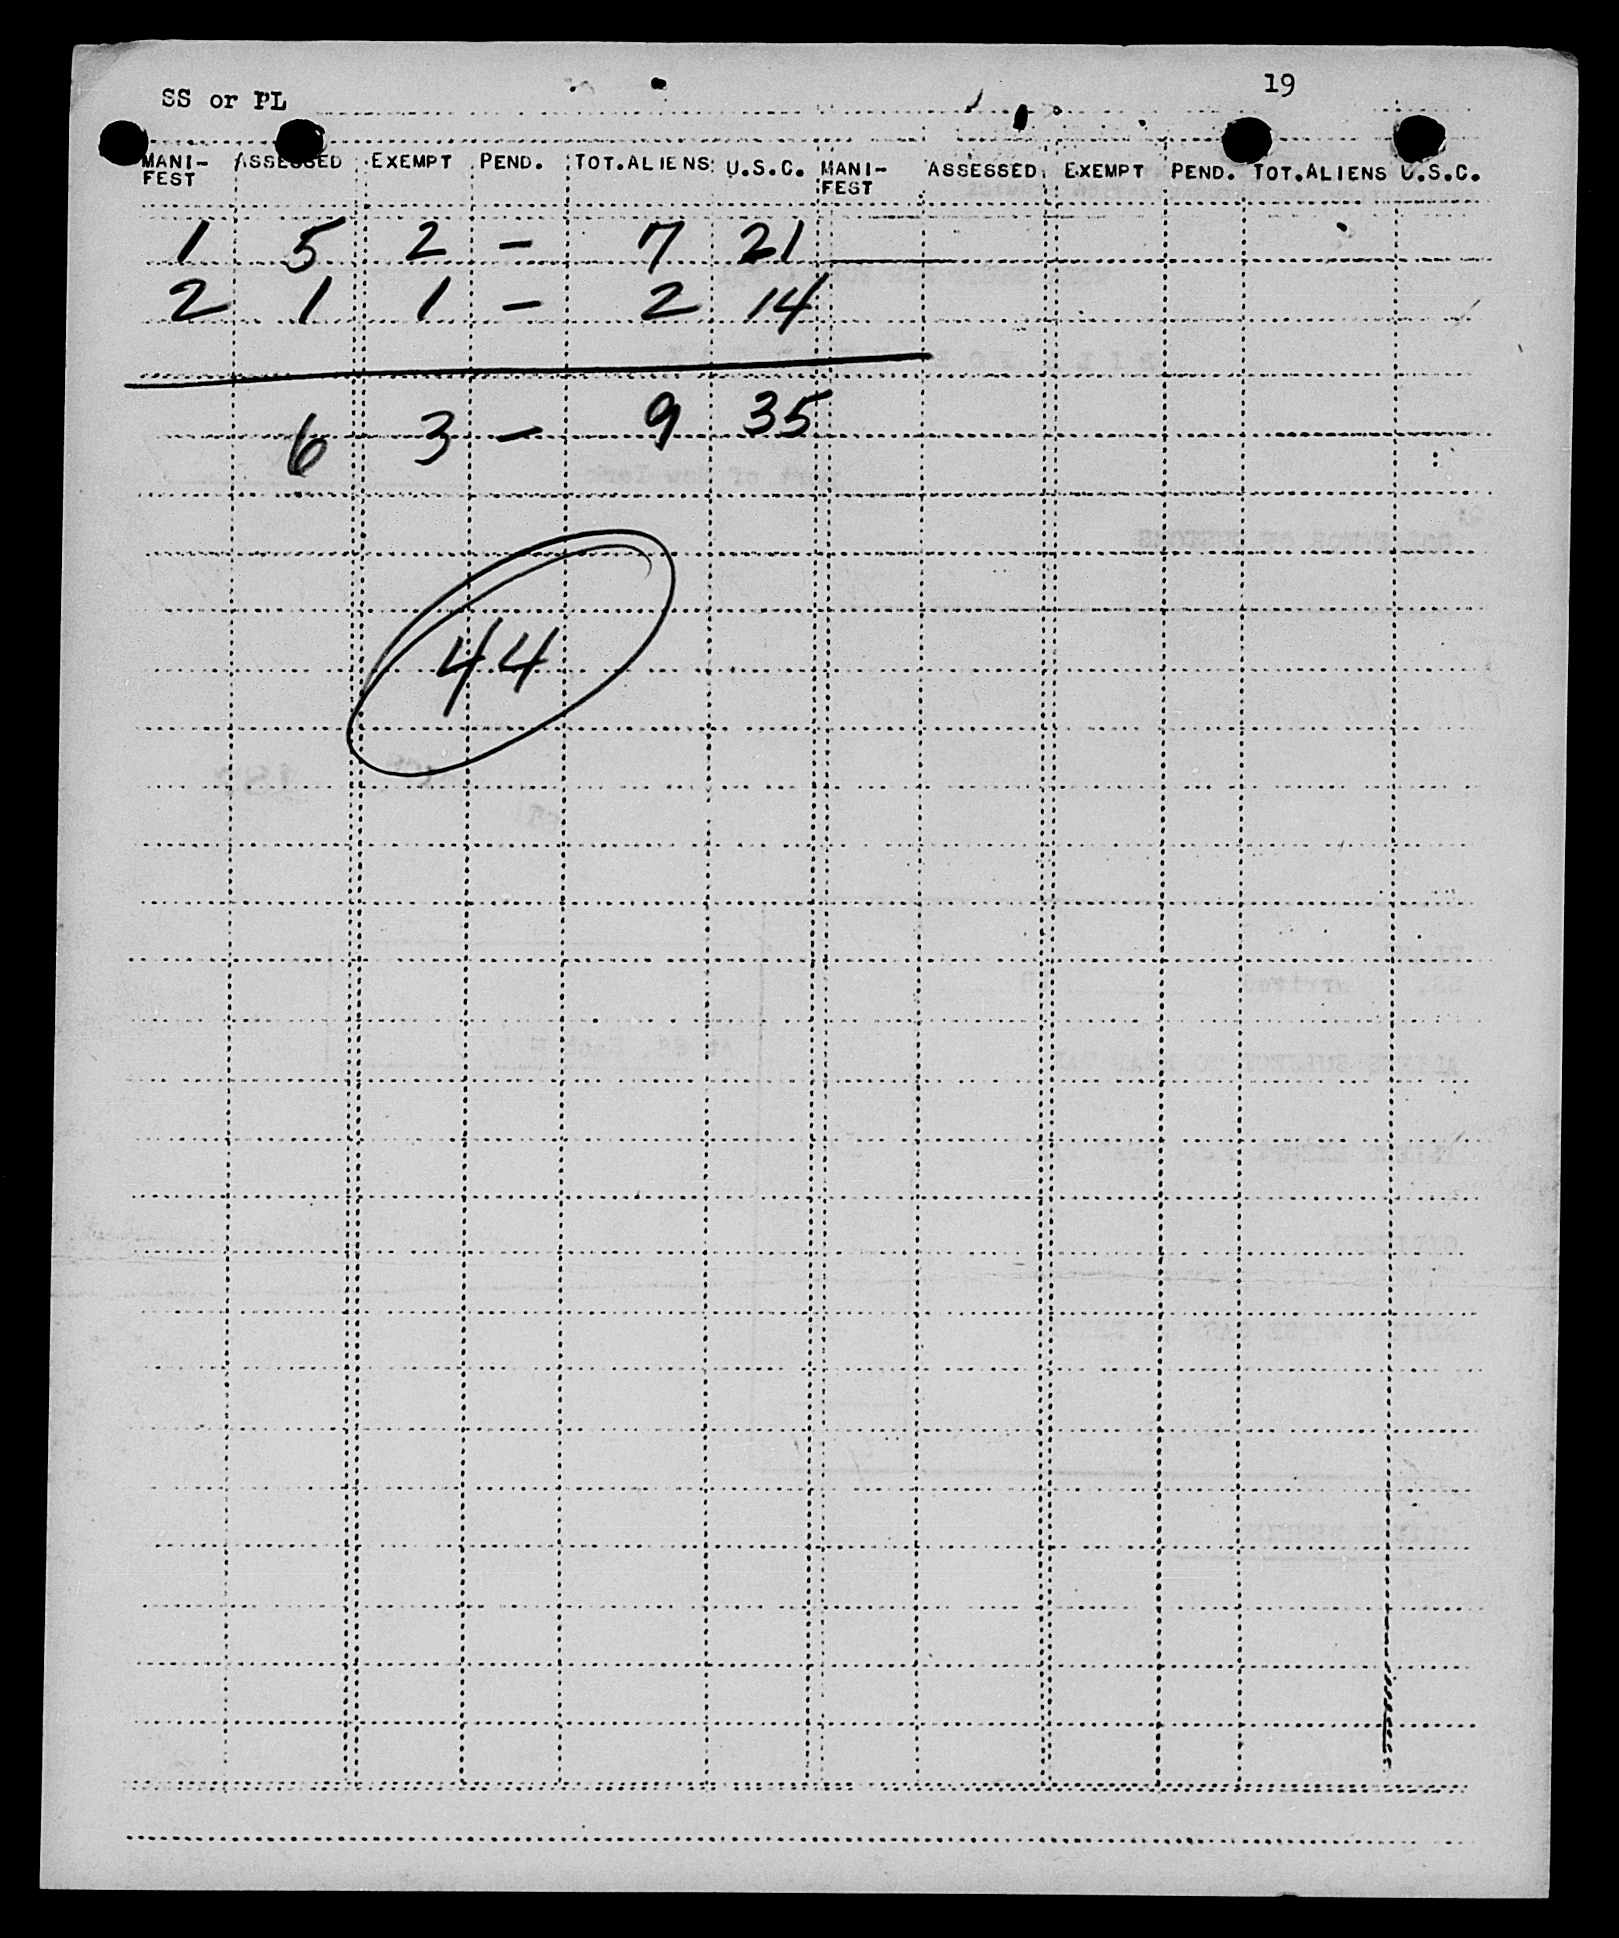 SS or PL 19
MANI-FEST ASSESSED EXEMPT PEND. TOT.ALIENS U.S.C. MANI-FEST ASSESSED EXEMPT PEND. TOT.ALIENS U.S.C.
1 5 2 - 7 21
2 1 1 - 2 14
6 3 - 9 35
44